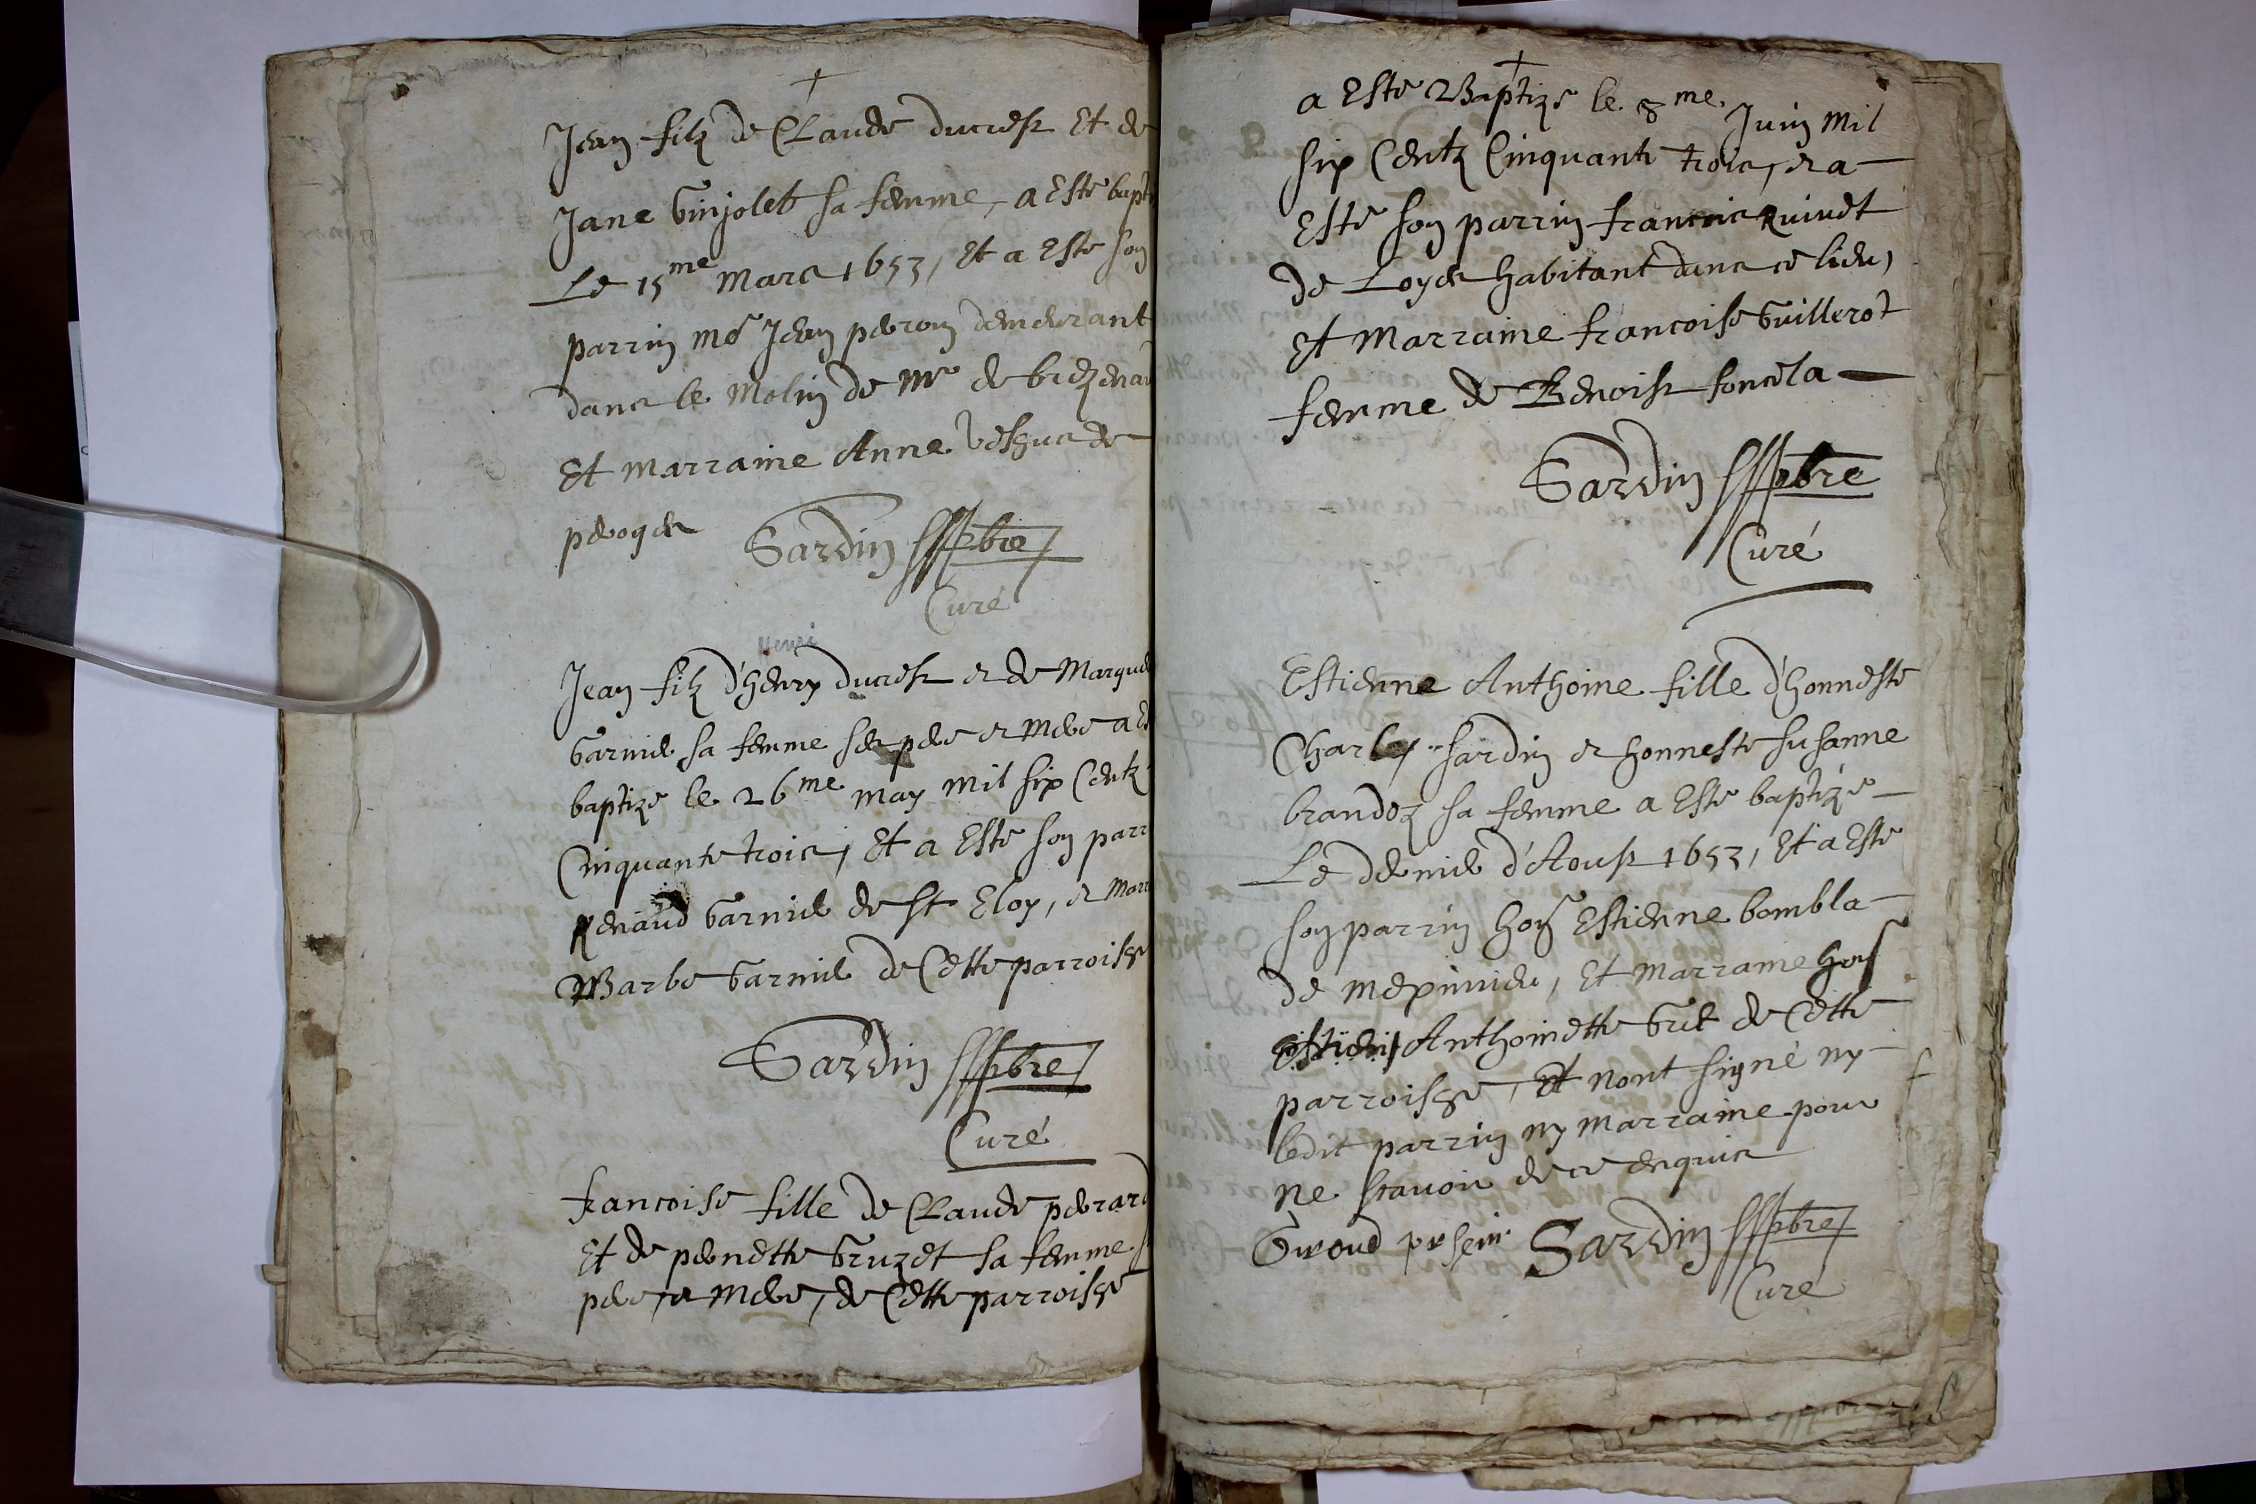 Jean filz de Claude ducrest Et de
Jane Guijolet sa femme, a Esté bapt
Le 15me Mars 1653, Et a Esté son
parrin me Jean perron demeurant
dans le Molin de Mr de
Et Marraine Anne de
peroges Sardin pbre
Curé
Henri
Jean filz d'henry ducrest et de Margue
Garnier sa femme ses pere et Mere a Es
baptizé le 26me may Mil six Centz
Cinquante trois, Et a Esté son parr
Renaud Garnier de st Eloy, et Marr
Barbe Garnier de Cette parroisse
Sardin pbre
Curé
francoise fille de Claude perard
Et de pernette Gruzet sa femme
pere, et Mere, de Cette parroisse
a Esté Baptizé le 8me Juin Mil
six Centz Cinquante trois, et a
Esté son parrin francois
de Loyes habitant dans ce lieu,
Et Marraine francoise Guillerot
femme de Benoist
Sardin pbre
Curé
Estienne Anthoine fille d'honneste
Charles Sardin et honneste susanne
brandoz sa femme a Esté baptizé
Le dernier d'Aoust 1653, Et a Esté
son parrin hon Estienne bombla
de meximieu, Et Marraine hon
Anthoinette de Cette
parroisse, Et nont signé ny
ledit parrin ny marraine pour
ne scavoir de ce enquis
Giroud Sardin pbre
Curé